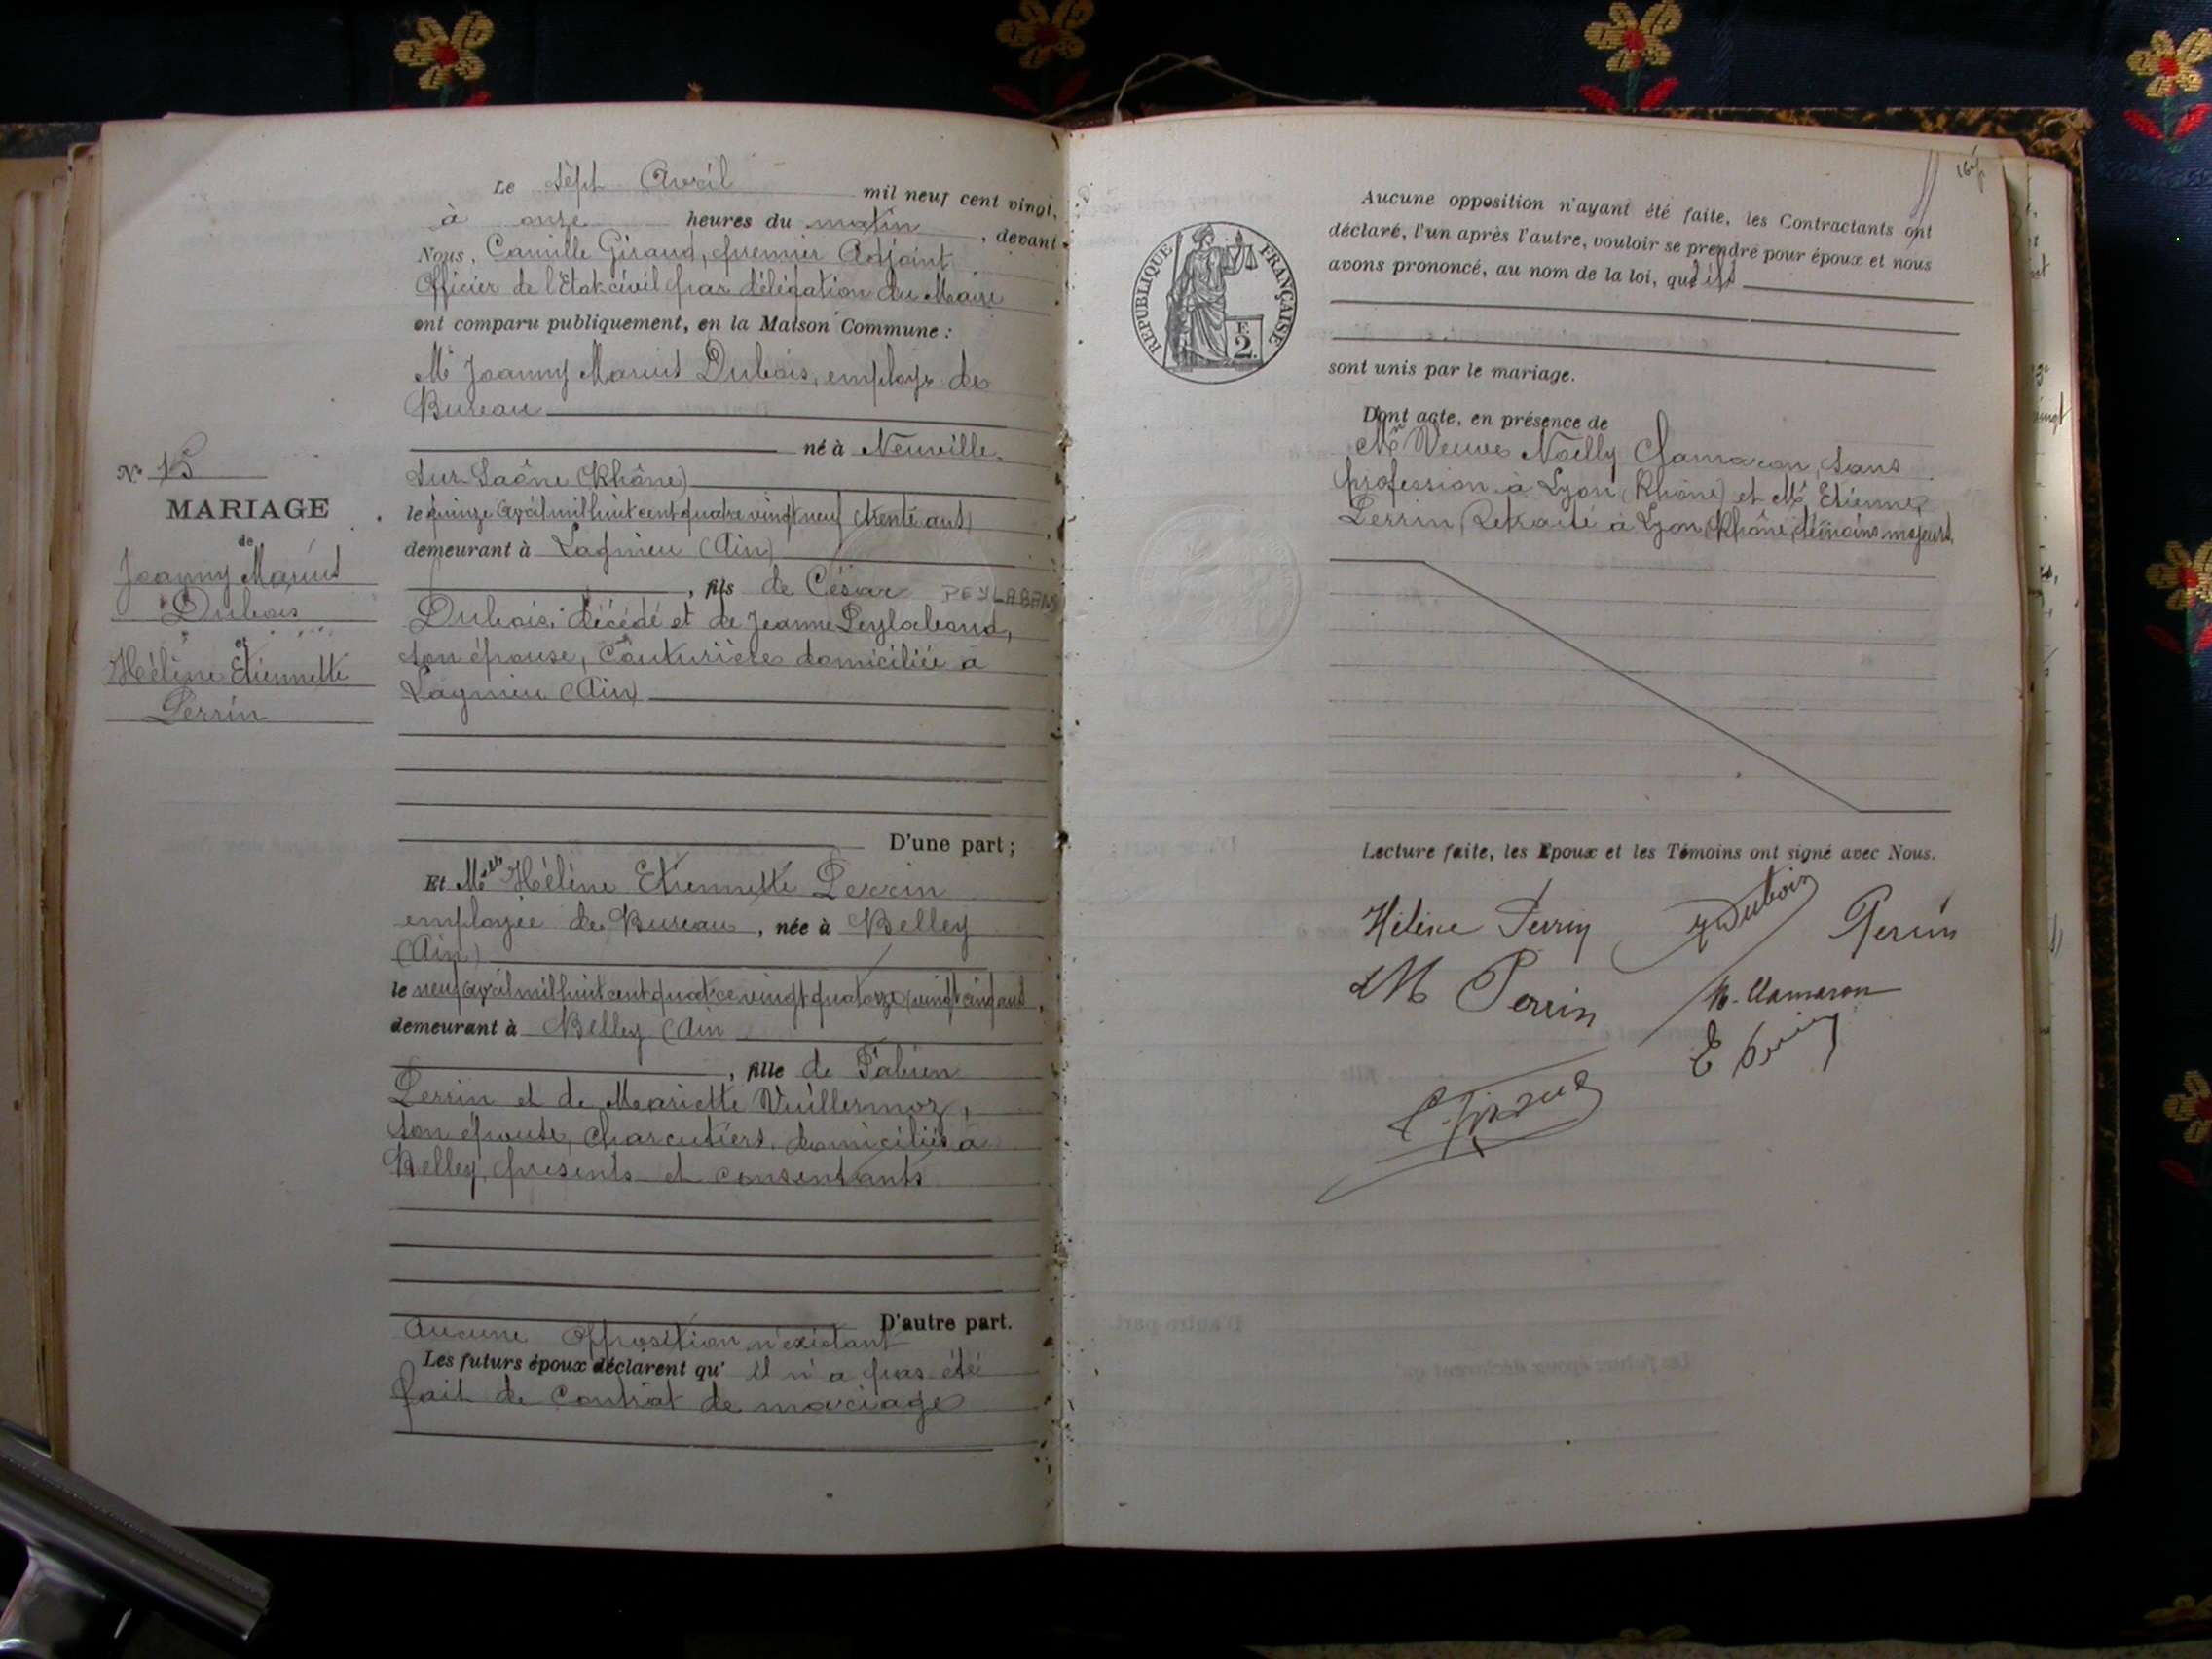 Le sept Avril mil neuf cent vingt,
à onze heures du matin, devant
Nous, Camille Giraud, premier Adjoint
Officier de l'Etat civil par délégation du Maire
ont comparu publiquement, en la Maison Commune :
Mr Joanny Marius Dubois, employé de
Bureau
né à Neuville
sur Saône (Rhône)
le quinze avril mil huit cent quatre vingt neuf (trente ans)
demeurant à Lagnieu (Ain)
, fils de César PEYLABAND
Dubois, décédé et de Jeanne Peylaboud,
son épouse, Couturière domiciliée à
Lagnieu (Ain)
D'une part ;
N° 15
MARIAGE
de
Joanny Marius
Dubois
et
Hélène Etiennette
Perrin
Et Melle Hélène Etiennette Perrin
employée de Bureau, née à Belley
(Ain)
le neuf avril mil huit cent quatre vingt quatorze (vingt cinq ans
demeurant à Belley (Ain
, fille de Fabien
Perrin et de Mariette Vuillermoz,
son épouse, charcutiers, domiciliés à
Belley, présents et consentants
D'autre part.
Aucune opposition n'existant
Les futurs époux déclarent qu' il n'a pas été
fait de Contrat de mariage
Aucune opposition n'ayant été faite, les Contractants ont
déclaré, l'un après l'autre, vouloir se prendre pour époux et nous
avons prononcé, au nom de la loi, qu'ils
REPUBLIQUE FRANÇAISE
F.
2.
sont unis par le mariage.
Dont acte, en présence de
Me Veuve Noelly Chamaron, sans
profession à Lyon (Rhône) et Mr Etienne
Perrin, Retraité à Lyon (Rhône), témoins majeurs.
Lecture faite, les Epoux et les Témoins ont signé avec Nous.
Hélène Perrin Dubois Perrin
M Perrin N. Chamaron
E Perrin
C. Giraud